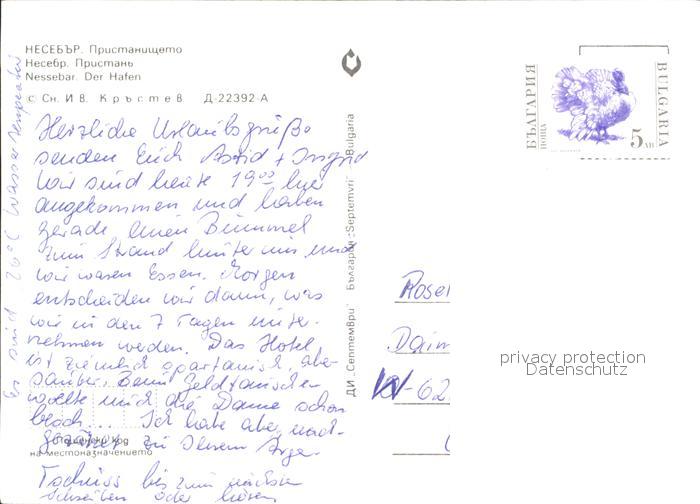 НЕСЕБЪР. Пристанището
Несебр. Пристань
Nessebar. Der Hafen
с Сн. Ив. Кръстев Д-22392-А
БЪЛГАРИЯ
ПОЩА
5 ЛВ
BULGARIA
Herzliche Urlaubsgrüße
senden Euch Astrid + Ingrid
Wir sind heute 19.00 hier
angekommen und haben
gerade einen Bummel
zum Strand hinter uns und
wir waren Essen. Morgen
entscheiden wir dann, was
wir in den 7 Tagen unter-
nehmen werden. Das Hotel
ist ziemlich spartanisch, aber
sauber. Beim Geldtauschen
wollte mich die Dame schon
Ich habe aber
zu
Tschüss bis zum nächsten
schreiben oder hören
Es sind 26°C Wasser
Пощенски код
на местоназначението
ДИ „Септември“ България „Septemvri“ Bulgaria
Rose
Daim
W-62
privacy protection
Datenschutz